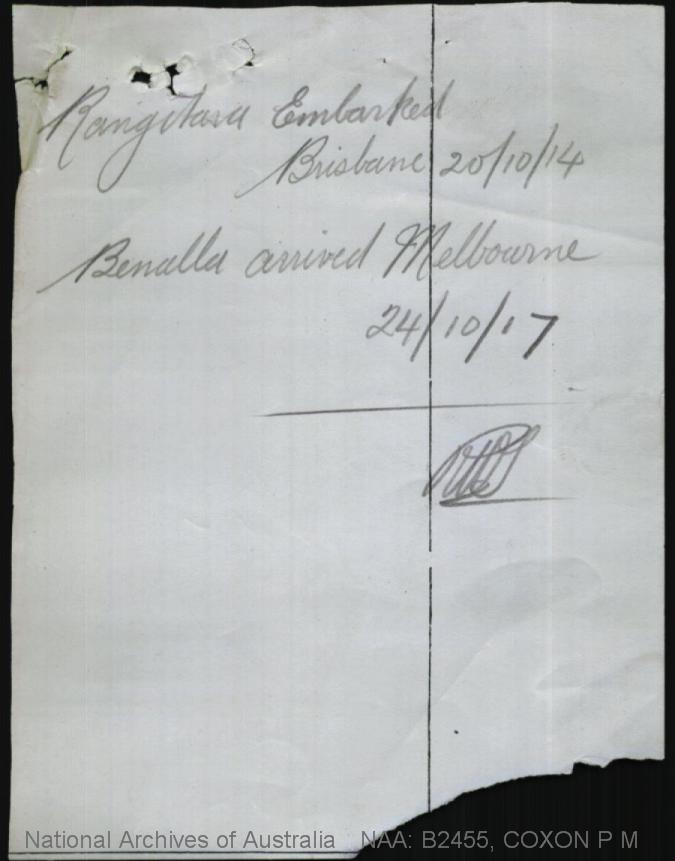 Rangitara Embarked
Brisbane 20/10/14
Benalla arrived Melbourne
24/10/17
National Archives of Australia NAA: B2455, COXON P M